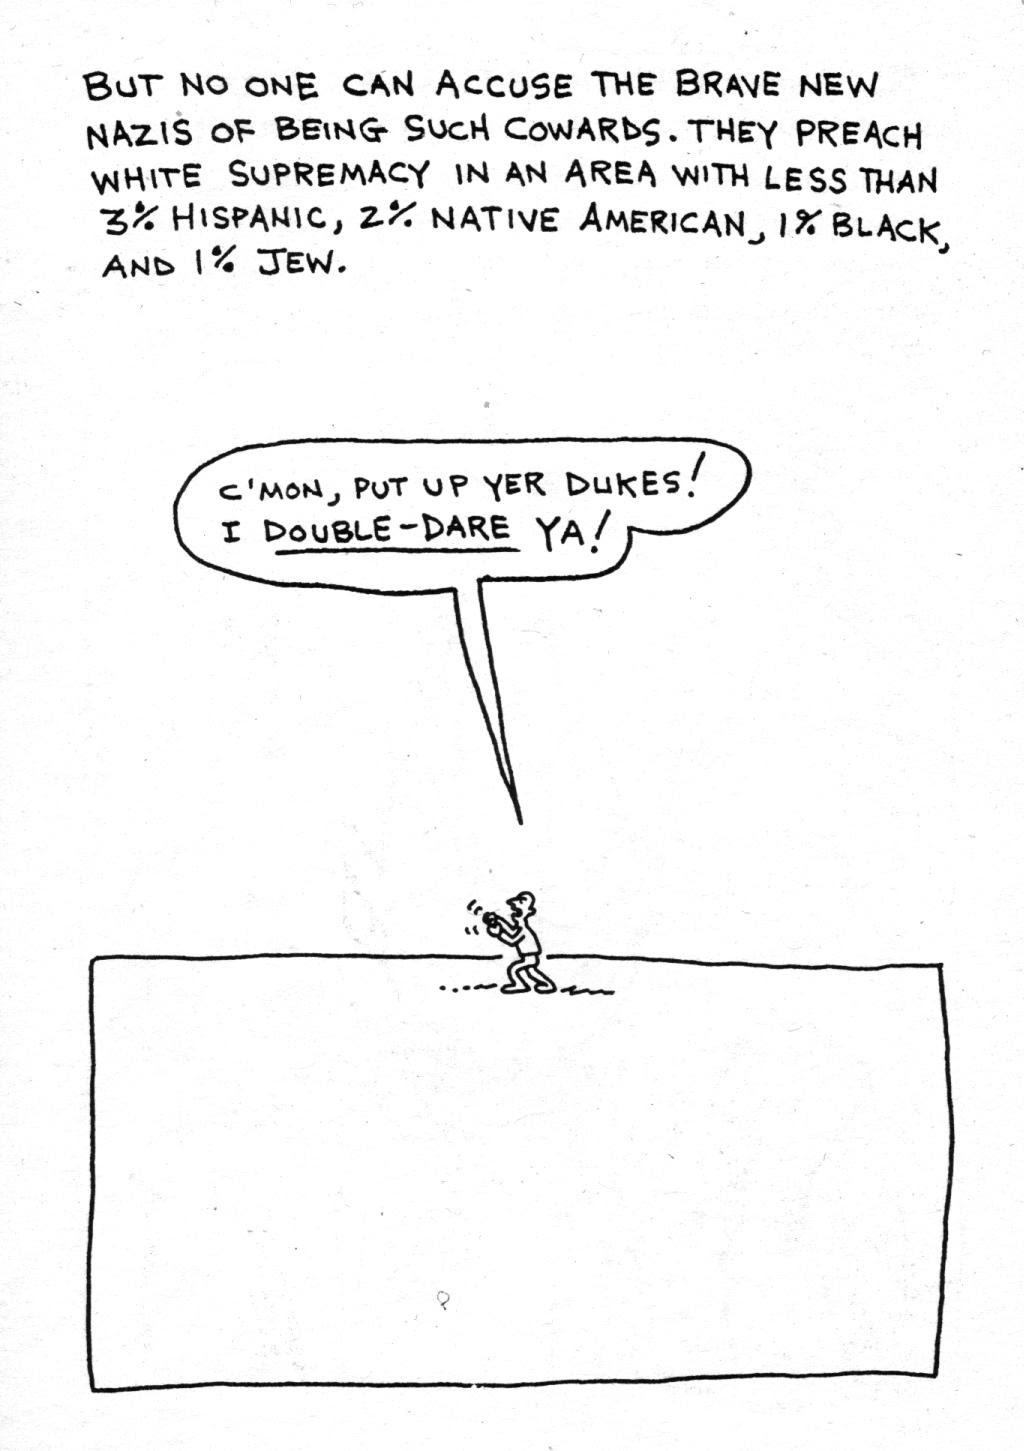 BUT NO ONE CAN ACCUSE THE BRAVE NEW
NAZIS OF BEING SUCH COWARDS. THEY PREACH
WHITE SUPREMACY IN AN AREA WITH LESS THAN
3% HISPANIC, 2% NATIVE AMERICAN, 1% BLACK,
AND 1% JEW.
C'MON, PUT UP YER DUKES!
I DOUBLE-DARE YA!